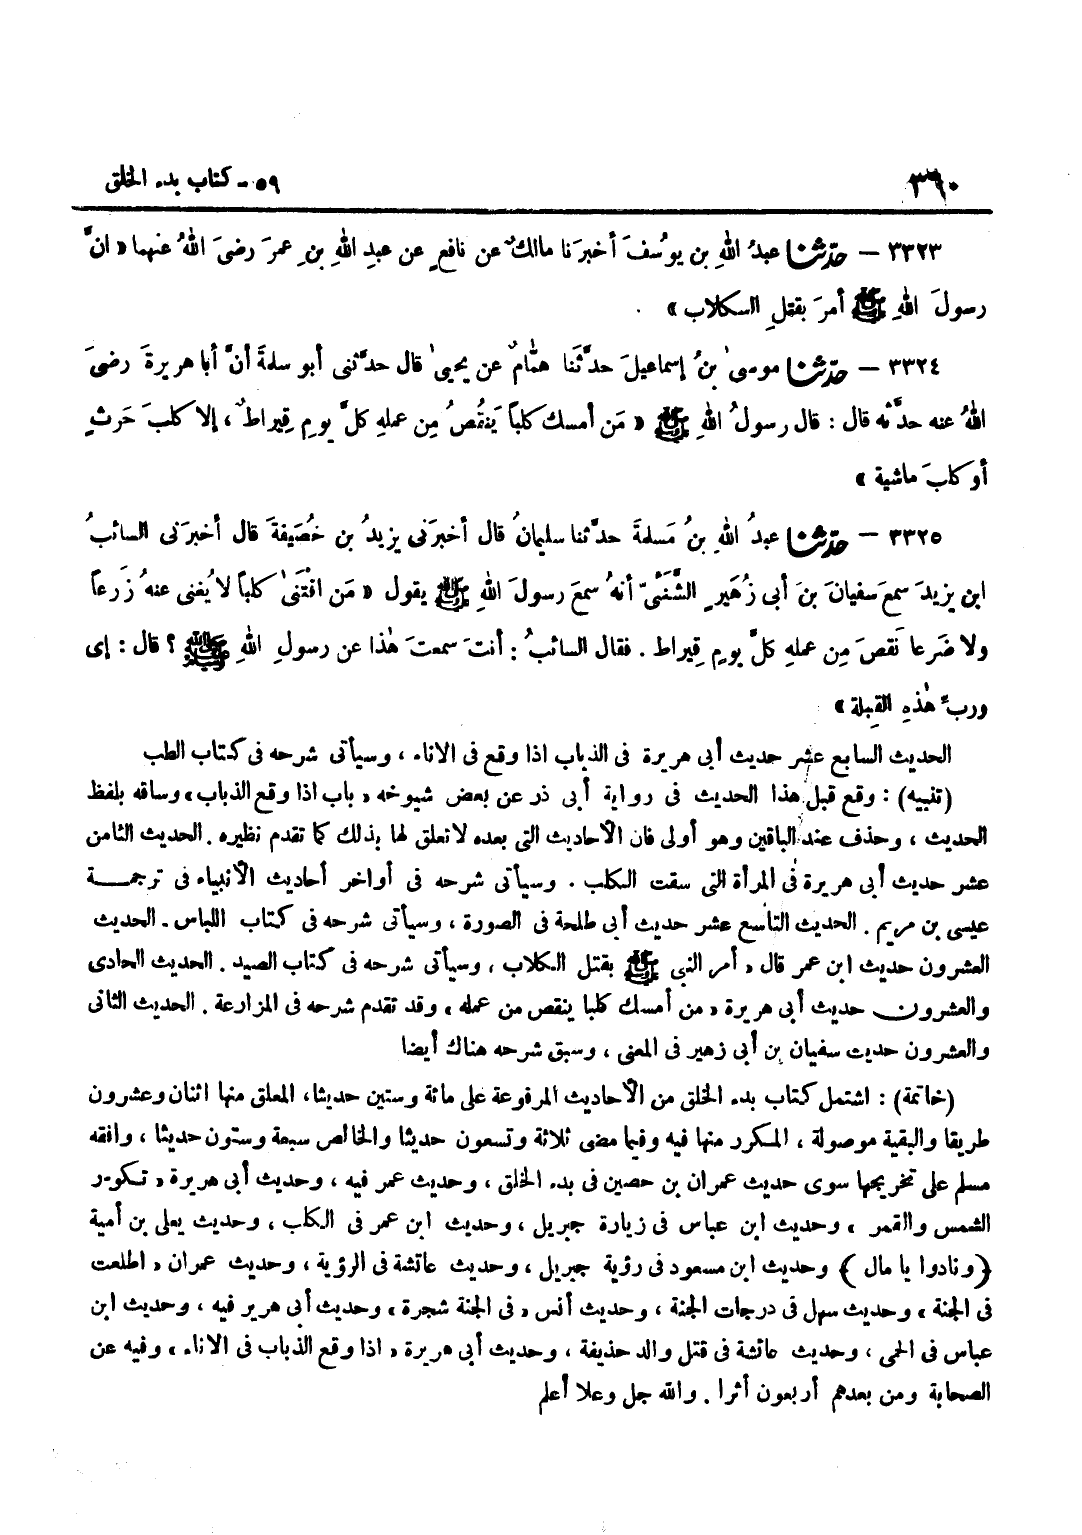 ٣٦٠
٥٩ - كتاب بدء الخلق
٣٣٢٣ – حدّثنا عبدُ اللهِ بن يوسُفَ أخبرَنا مالكٌ عن نافعٍ عن عبدِ اللهِ بنِ عمرَ رضىَ اللهُ عنهما « انَّ
رسولَ اللهِ ﷺ أمرَ بقتلِ الكلاب »
٣٣٢٤ – حدّثنا موسىٰ بنُ إسماعيلَ حدَّثَنا همَّامٌ عن يحيىٰ قال حدَّثنى أبو سلمةَ أنَّ أبا هريرةَ رضىَ
اللهُ عنه حدَّثه قال : قال رسولُ اللهِ ﷺ « مَن أمسك كلباً يَنقُصُ مِن عملهِ كلَّ يومٍ قِيراطٌ ، إلا كلبَ حَرثٍ
أو كلبَ ماشية »
٣٣٢٥ – حدّثنا عبدُ اللهِ بنُ مَسلمةَ حدَّثنا سليمانُ قال أخبرَنى يزيدُ بن خُصَيفةَ قال أخبرَنى السائبُ
ابن يزيدَ سمعَ سفيانَ بنَ أبى زُهَيرٍ الشَّنَئىّ أنهُ سمعَ رسولَ اللهِ ﷺ يقول « مَن اقْتنىٰ كلباً لا يُغنى عنهُ زَرعاً
ولا ضَرعا نَقصَ مِن عملهِ كلَّ يومٍ قِيراط . فقال السائبُ : أنتَ سمعتَ هٰذا عن رسولِ اللهِ ﷺ ؟ قال : إى
وربِّ هٰذهِ القِبلة »
الحديث السابع عشر حديث أبى هريرة فى الذباب اذا وقع فى الاناء ، وسيأتى شرحه فى كتاب الطب
(تنبيه) : وقع قبل هذا الحديث فى رواية أبى ذر عن بعض شيوخه « باب اذا وقع الذباب » وساقه بلفظ
الحديث ، وحذف عند الباقين وهو أولى فان الأحاديث التى بعده لا تعلق لها بذلك كما تقدم نظيره . الحديث الثامن
عشر حديث أبى هريرة فى المرأة التى سقت الكلب . وسيأتى شرحه فى أواخر أحاديث الأنبياء فى ترجمة
عيسى بن مريم . الحديث التاسع عشر حديث أبى طلحة فى الصورة ، وسيأتى شرحه فى كتاب اللباس . الحديث
العشرون حديث ابن عمر قال « أمر النبى ﷺ بقتل الكلاب ، وسيأتى شرحه فى كتاب الصيد . الحديث الحادى
والعشرون حديث أبى هريرة « من أمسك كلبا ينقص من عمله » وقد تقدم شرحه فى المزارعة . الحديث الثانى
والعشرون حديث سفيان بن أبى زهير فى المعنى ، وسبق شرحه هناك أيضا
(خاتمة) : اشتمل كتاب بدء الخلق من الأحاديث المرفوعة على مائة وستين حديثا، المعلق منها اثنان وعشرون
طريقا والبقية موصولة ، المكرر منها فيه وفيما مضى ثلاثة وتسعون حديثا والخالص سبعة وستون حديثا ، وافقه
مسلم على تخريجها سوى حديث عمران بن حصين فى بدء الخلق ، وحديث عمر فيه ، وحديث أبى هريرة « تكوير
الشمس والقمر » وحديث ابن عباس فى زيارة جبريل ، وحديث ابن عمر فى الكلب ، وحديث يعلى بن أمية
﴿ونادوا يا مال﴾ وحديث ابن مسعود فى رؤية جبريل ، وحديث عائشة فى الرؤية ، وحديث عمران « اطلعت
فى الجنة » وحديث سهل فى درجات الجنة ، وحديث أنس « فى الجنة شجرة » وحديث أبى هرير فيه ، وحديث ابن
عباس فى الحمى ، وحديث عائشة فى قتل والد حذيفة ، وحديث أبى هريرة « اذا وقع الذباب فى الاناء » وفيه عن
الصحابة ومن بعدهم أربعون أثرا . والله جل وعلا أعلم